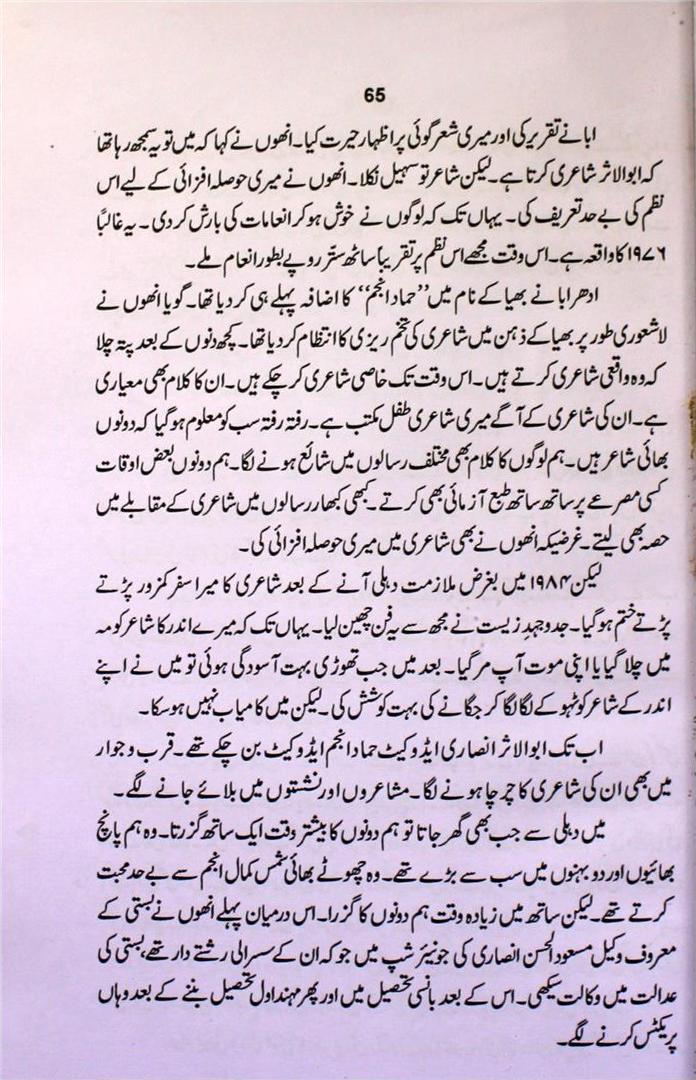 65
ابا نے تقریر کی اور میری شعر گوئی پر اظہار حیرت کیا۔ انھوں نے کہا کہ میں تو یہ سمجھ رہا تھا
کہ ابوالاثر شاعری کرتا ہے۔ لیکن شاعر تو سہیل نکلا۔ انھوں نے میری حوصلہ افزائی کے لیے اس
نظم کی بے حد تعریف کی۔ یہاں تک کہ لوگوں نے خوش ہو کر انعامات کی بارش کر دی۔ یہ غالباً
۱۹۷۶ کا واقعہ ہے۔ اس وقت مجھے اس نظم پر تقریباً ساٹھ ستّر روپے بطور انعام ملے۔
ادھر ابا نے بھیا کے نام میں ”حماد انجم“ کا اضافہ پہلے ہی کر دیا تھا۔ گویا انھوں نے
لاشعوری طور پر بھیا کے ذہن میں شاعری کی تخم ریزی کا انتظام کر دیا تھا۔ کچھ دنوں کے بعد پتہ چلا
کہ وہ واقعی شاعری کرتے ہیں۔ اس وقت تک خاصی شاعری کر چکے ہیں۔ ان کا کلام بھی معیاری
ہے۔ ان کی شاعری کے آگے میری شاعری طفل مکتب ہے۔ رفتہ رفتہ سب کو معلوم ہو گیا کہ دونوں
بھائی شاعر ہیں۔ ہم لوگوں کا کلام بھی مختلف رسالوں میں شائع ہونے لگا۔ ہم دونوں بعض اوقات
کسی مصرعے پر ساتھ ساتھ طبع آزمائی بھی کرتے۔ کبھی کبھار رسالوں میں شاعری کے مقابلے میں
حصہ بھی لیتے۔ غرضیکہ انھوں نے بھی شاعری میں میری حوصلہ افزائی کی۔
لیکن ۱۹۸۴ میں بغرض ملازمت دہلی آنے کے بعد شاعری کا میرا سفر کمزور پڑتے
پڑتے ختم ہو گیا۔ جدوجہد زیست نے مجھ سے یہ فن چھین لیا۔ یہاں تک کہ میرے اندر کا شاعر کومہ
میں چلا گیا یا اپنی موت آپ مر گیا۔ بعد میں جب تھوڑی بہت آسودگی ہوئی تو میں نے اپنے
اندر کے شاعر کو ٹہوکے لگا لگا کر جگانے کی بہت کوشش کی۔ لیکن میں کامیاب نہیں ہو سکا۔
اب تک ابوالاثر انصاری ایڈوکیٹ حماد انجم ایڈوکیٹ بن چکے تھے۔ قرب و جوار
میں بھی ان کی شاعری کا چرچا ہونے لگا۔ مشاعروں اور نشستوں میں بلائے جانے لگے۔
میں دہلی سے جب بھی گھر جاتا تو ہم دونوں کا بیشتر وقت ایک ساتھ گزرتا۔ وہ ہم پانچ
بھائیوں اور دو بہنوں میں سب سے بڑے تھے۔ وہ چھوٹے بھائی شمس کمال انجم سے بے حد محبت
کرتے تھے۔ لیکن ساتھ میں زیادہ وقت ہم دونوں کا گزرا۔ اس درمیان پہلے انھوں نے بستی کے
معروف وکیل مسعود الحسن انصاری کی جونیئر شپ میں جو کہ ان کے سسرالی رشتے دار تھے، بستی کی
عدالت میں وکالت سیکھی۔ اس کے بعد بانسی تحصیل میں اور پھر مہنداول تحصیل بننے کے بعد وہاں
پریکٹس کرنے لگے۔